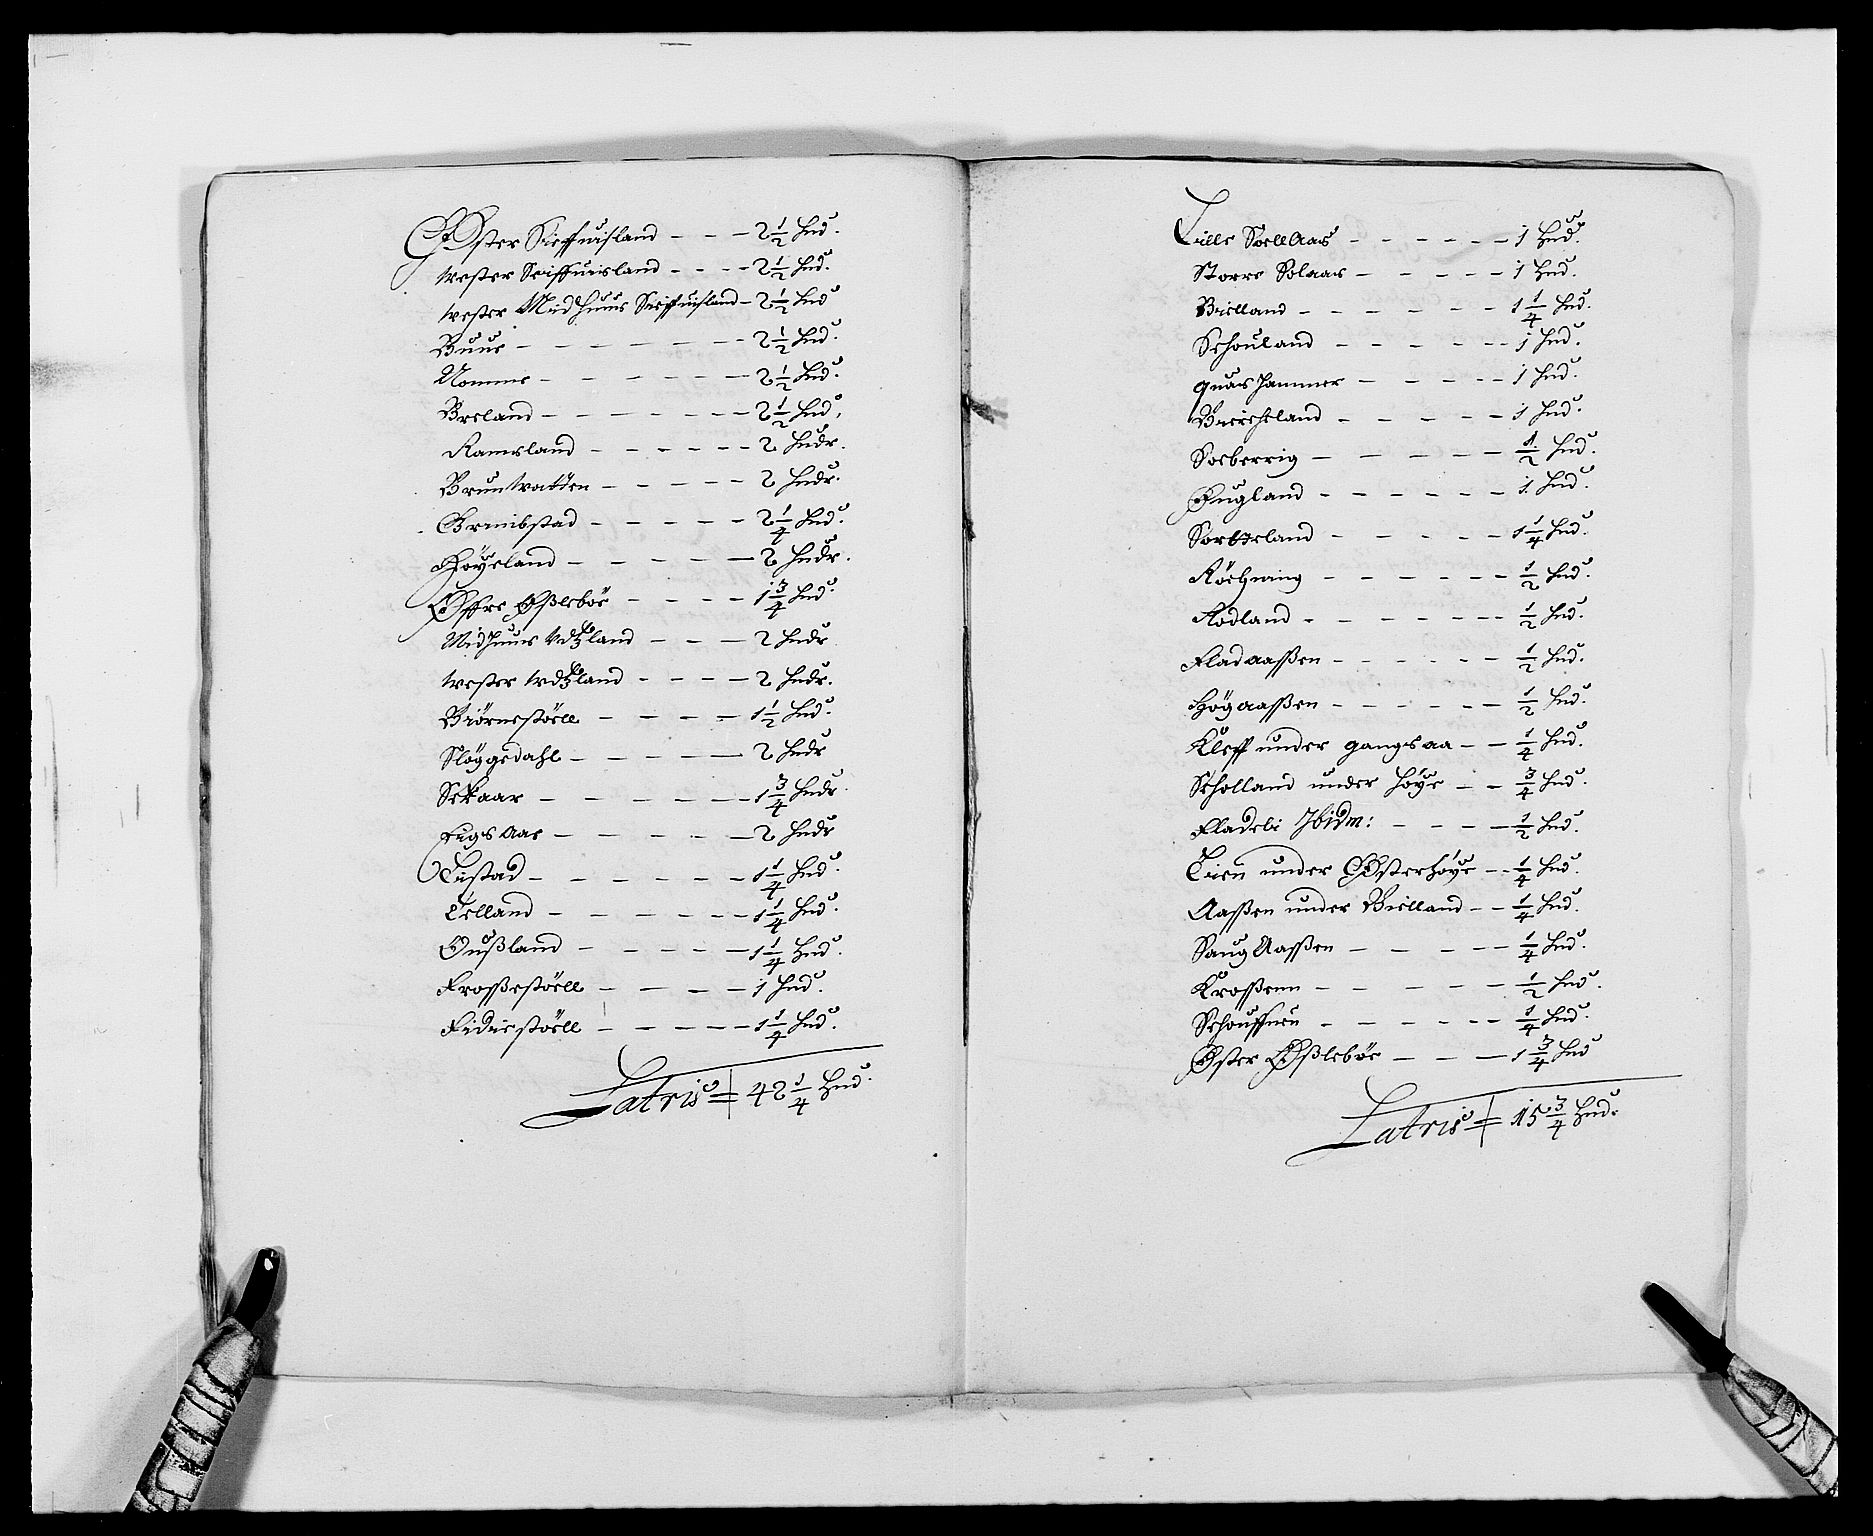 Øster Sieffuisland - - - 2 1/2 hud.
wester Seiffuisland - - - - 2 1/2 hud.
wester Midhuus Seiffuisland - 2 1/2 hud
Buue - - - - - - - 2 1/2 hud.
Nomme - - - - - - 2 1/2 hud.
Breland - - - - - - 2 1/2 hud.
Ramsland - - - - - - 2 hudr.
Bruntvatten - - - - - 2 hudr.
Grmibstad - - - - - 2 1/4 hud.
Høyeland - - - - - 2 hudr.
Øffre Øßlebøe - - - - 1 3/4 hud.
Midhuus land - - - 2 hudr
wester land - - - - 2 hudr.
Biørnestøell - - - - 1 1/2 hud.
Sløggedahl - - - - - 2 hudr
Sekaar - - - - - - 1 3/4 hudr.
Eigs Aas - - - - - - 2 hudr
Listad - - - - - - 1 1/4 hud.
Telland - - - - - - 1 1/4 hud.
Oußland - - - - - 1 1/4 Hud.
Froßestøell - - - - 1 hud.
Fidiestøell - - - - - 1 1/4 hud.
Latris = 42 1/4 Hud.
Lille Soell Aas - - - - - - 1 Hud.
Storre Solaas - - - - - 1 Hud.
Bielland - - - - - - 1 1/4 hud.
Schouland - - - - - 1 hud.
quas hammer - - - - - 1 hud.
Bierchland - - - - - 1 hud.
Soeberrig - - - - - 1/2 hud.
Fugland - - - - - - 1 hud.
Sorteland - - - - - 1 1/4 hud.
Røehning - - - - - - 1/2 hud.
Rodland - - - - - - 1/2 hud.
Fladaaßen - - - - - - 1/2 hud.
Høgaaßen - - - - - - 1/2 hud.
Kleff under gangsaa - - 1/4 hud.
Scholland under høye - - 3/4 hud.
Fladebi Ibidm: - - - - 1/2 hud.
Lien under Østerhøye - - 1/4 hud.
Aaßen under Bielland - - 1/4 hud.
Haug Aaßen - - - - - 1/4 hud.
Kroßenn - - - - - 1/2 hud.
Schouffuen - - - - - 1/4 hud.
Øster Øßlebøe - - - 1 3/4 hud
Latris = 15 3/4 Hud.